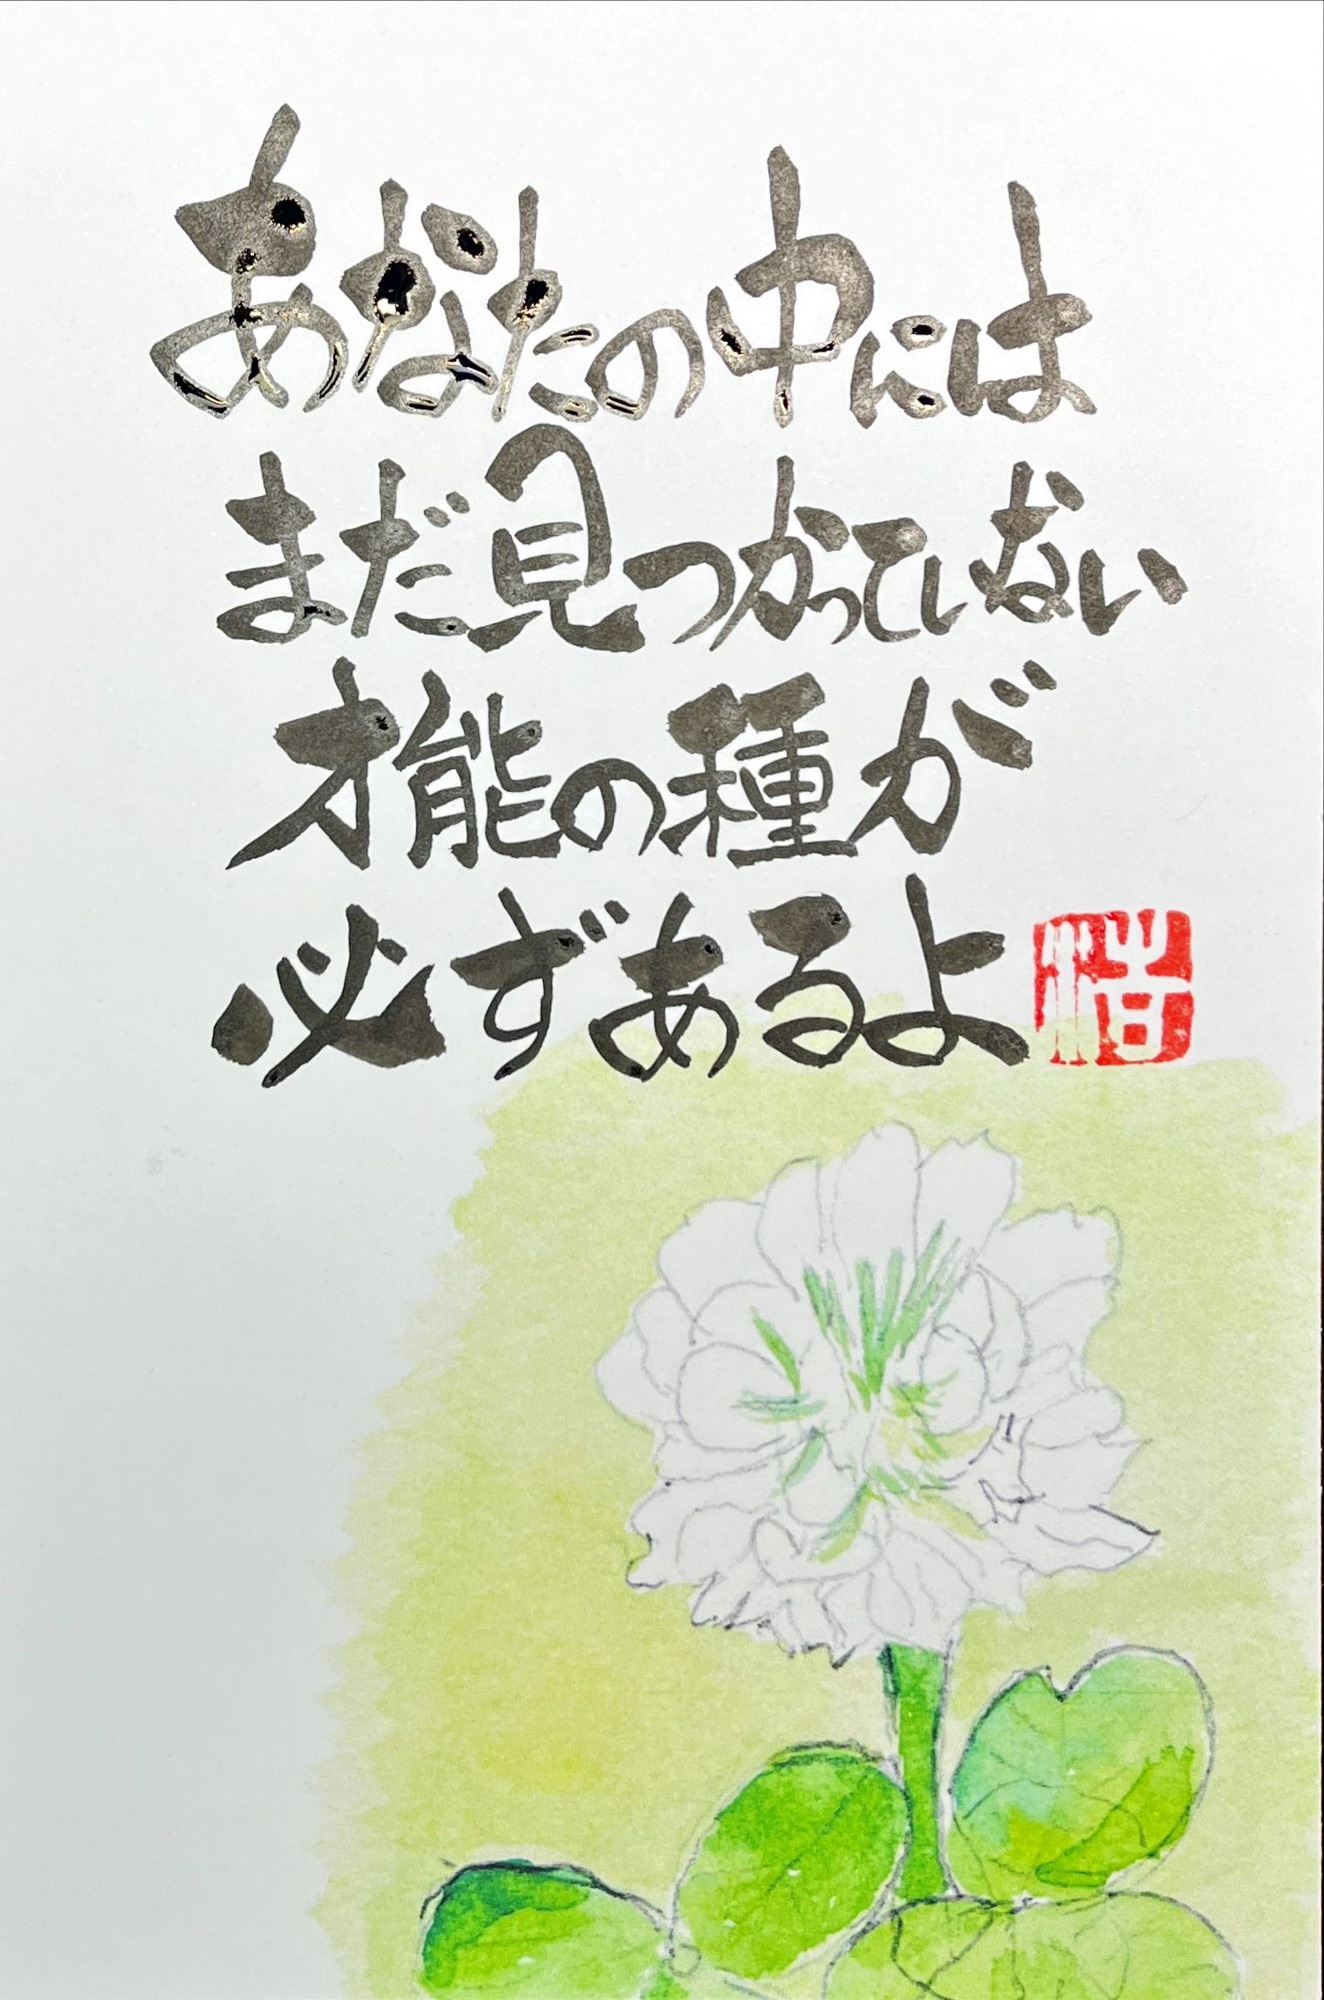 あなたの中には
まだ見つかっていない
才能の種が
必ずあるよ